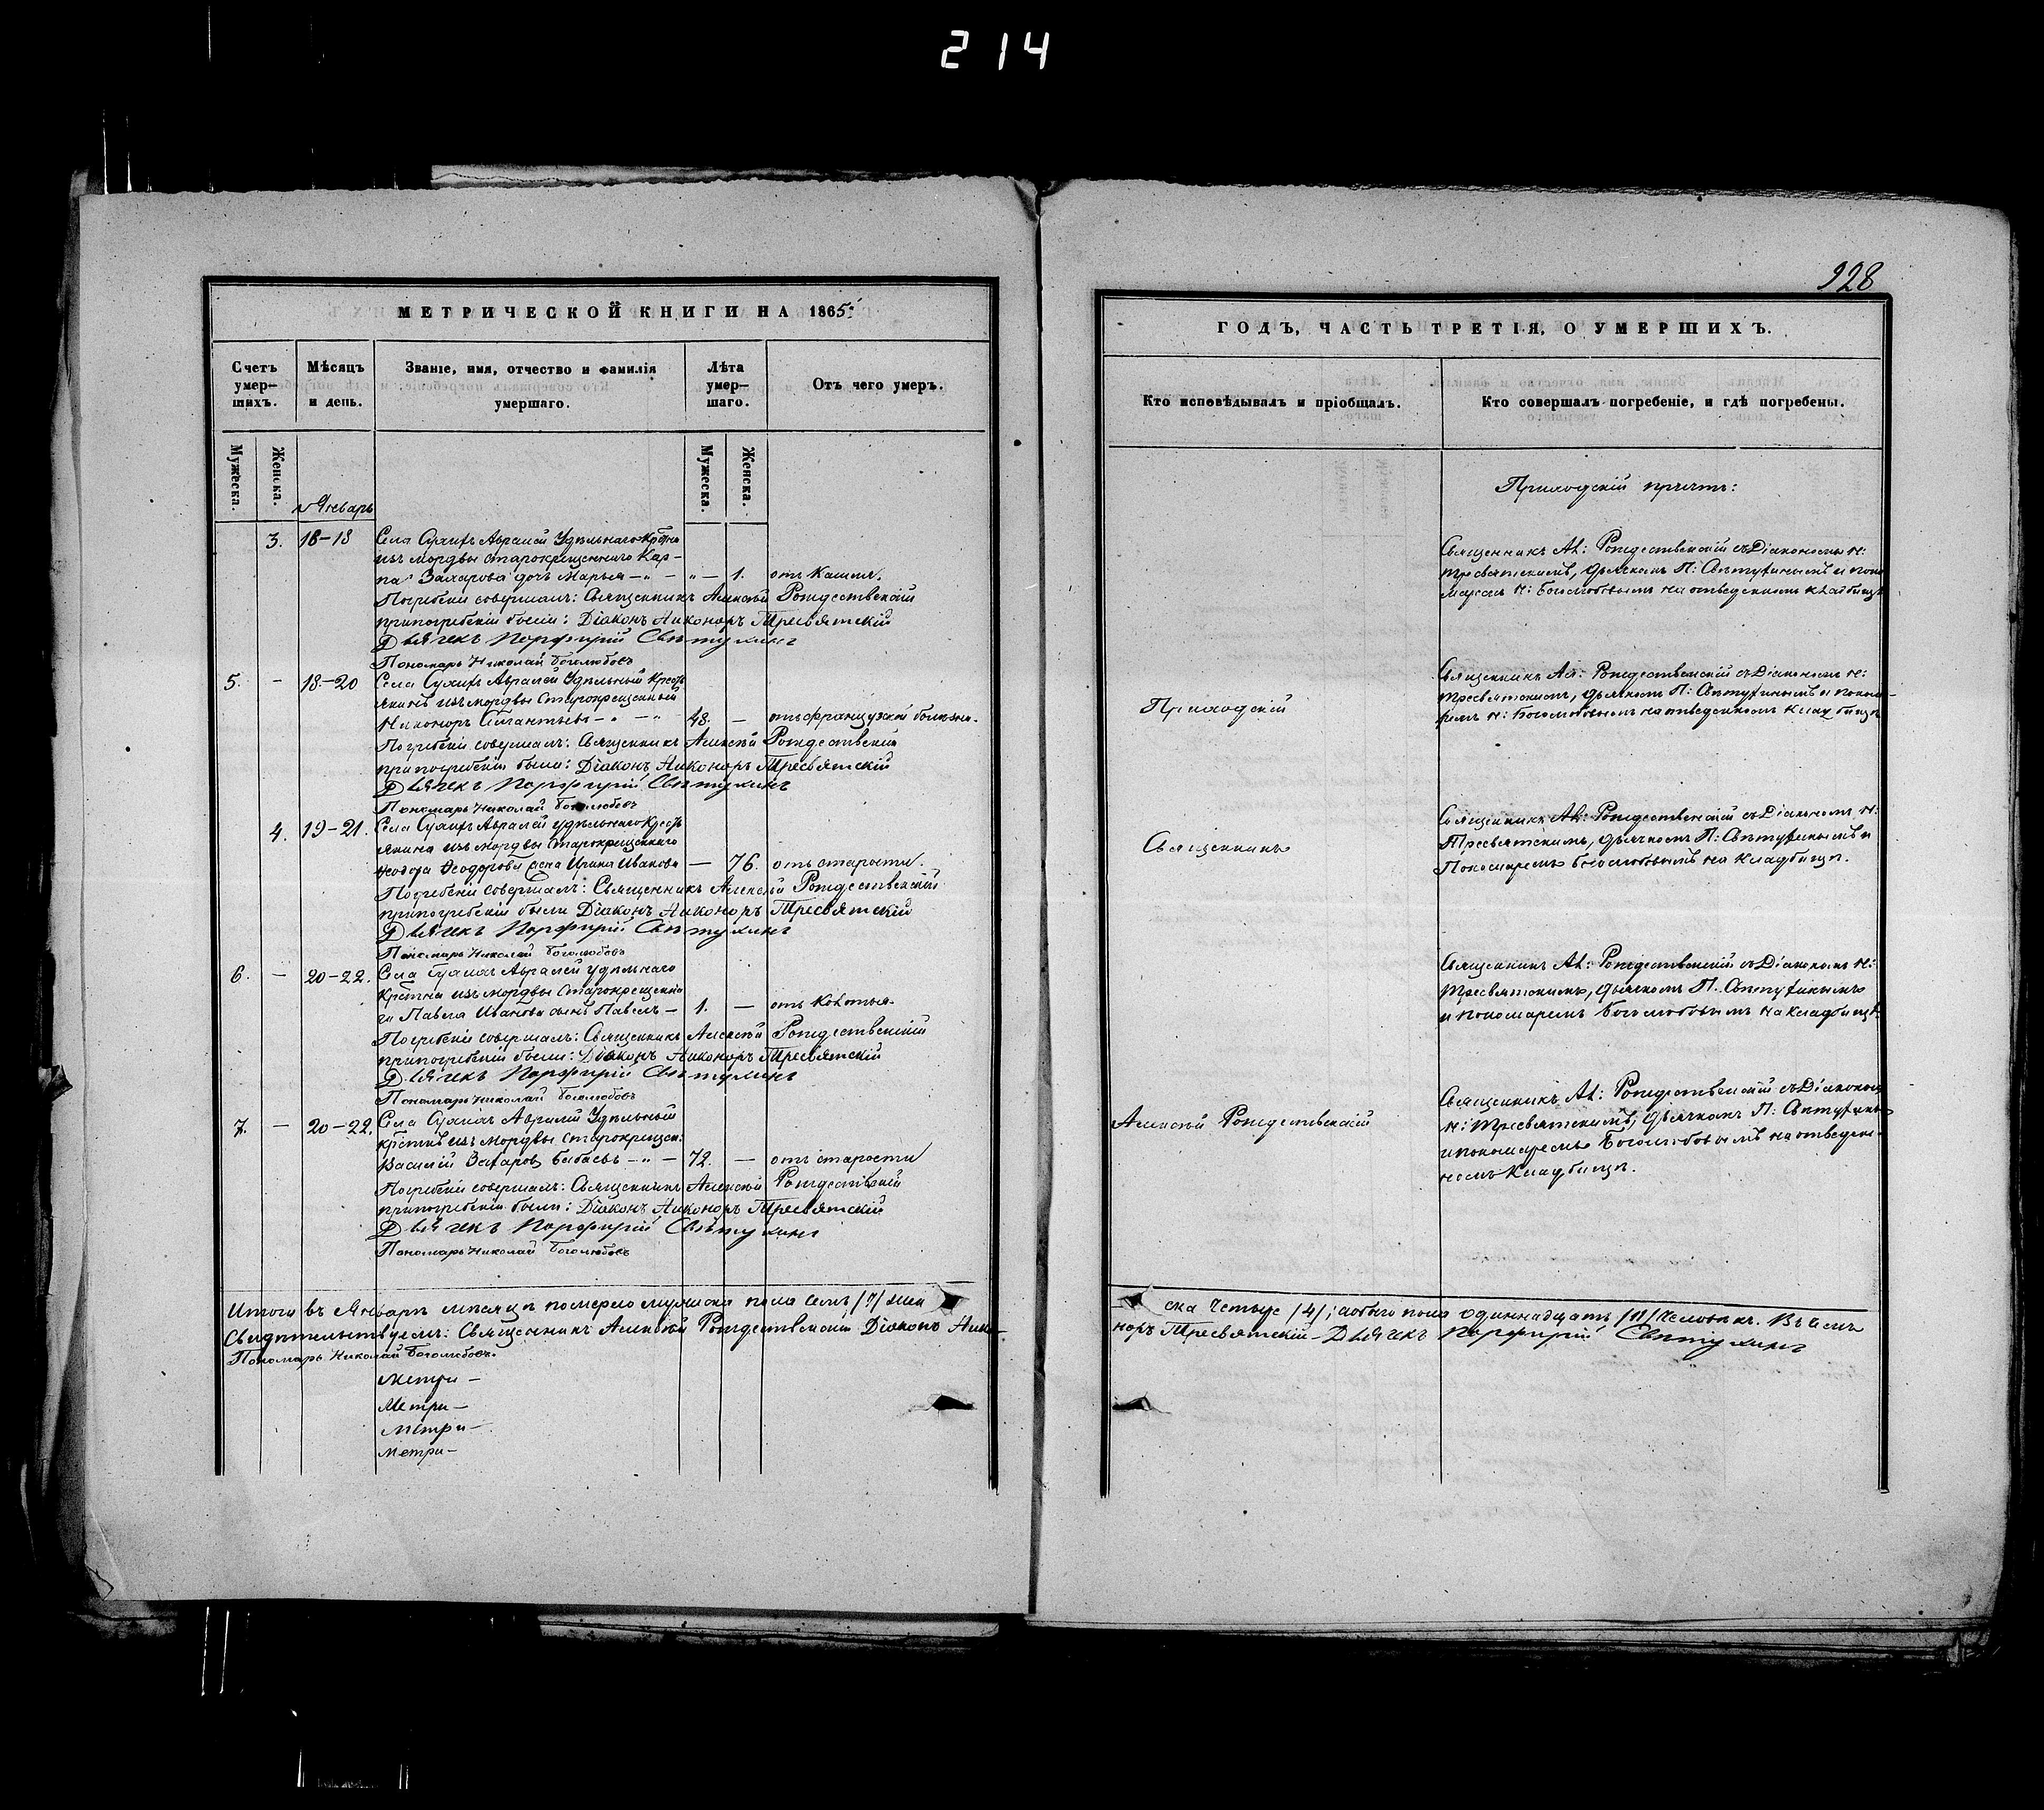 214
928
МЕТРИЧЕСКОЙ КНИГИ НА 1865
Счетъ умер-шихъ.
Мѣсяцъ и день.
Званіе, имя, отчество и фамилія умершаго.
Лѣта умер-шаго.
Отъ чего умеръ.
Мужеска.
Женска.
Январь
Мужеска.
Женска.
3. 18-18 Села Авралей Удѣльнаго
изъ мордвы старокрещеннаго Кар-
па Захарова дочь Марья - " - " - 1. отъ Кашля.
Погребеніе совершалъ: Священникъ Алексѣй Рождественскій
при погребеніи были: Діаконъ Никоноръ Тресвятскій
Дьячекъ Порфирій
Пономарь Николай Боголюбовъ
5. - 18-20 Села Авралей Удѣльный Крестъ
янинъ изъ мордвы Старокрещенный
Никоноръ - " - " 48. - отъ французской болѣзни.
Погребеніе совершалъ: Священникъ Алексѣй Рождественскій
при погребеніи были: Діаконъ Никоноръ Тресвятскій
Дьячекъ Порфирій
Пономарь Николай Боголюбовъ
4. 19-21. Села Авралей Удѣльнаго Крестъ
янина изъ мордвы Старокрещеннаго
Ѳеодора Ѳеодорова жена Ирина Иванова - 76. отъ старости.
Погребеніе совершалъ: Священникъ Алексѣй Рождественскій
при погребеніи были Діаконъ Никоноръ Тресвятскій
Дьячекъ Порфирій
Пономарь Николай Боголюбовъ
6. - 20-22. Села Авралей Удѣльнаго
изъ мордвы Старокрещенна
го Павла Иванова сынъ Павелъ - 1. - отъ Колотья
Погребеніе совершалъ: Священникъ Алексѣй Рождественскій
при погребеніи были: Діаконъ Никоноръ Тресвятскій
Дьячекъ Порфирій
Пономарь Николай Боголюбовъ
7. - 20-22. Села Авралей Удѣльный
изъ мордвы Старокрещен:
Василій Захаровъ - " - 72. - отъ старости
Погребеніе совершалъ: Священникъ Алексѣй Рождественскій
при погребеніи были: Діаконъ Никоноръ Тресвятскій
Дьячекъ Порфирій
Пономарь Николай Боголюбовъ
Итого въ Январѣ мѣсяцѣ померло мужеска пола семь /7/ жен
Свидѣтельствуемъ: Священникъ Алексѣй Рождественскій Діаконъ Нико-
Пономарь Николай Боголюбовъ.
Метри-
Метри-
Метри-
Метри-
ГОДЪ, ЧАСТЬ ТРЕТІЯ, О УМЕРШИХЪ.
Кто исповѣдывалъ и пріобщалъ.
Кто совершалъ погребеніе, и гдѣ погребены.
Приходскій причтъ:
Священникъ Ал: Рождественскій съ Діакономъ Н:
Тресвятскимъ, дьячкомъ П: и поно
маремъ Н: Боголюбовымъ на отведенномъ кладбищѣ
Приходскій
Священникъ Ал: Рождественскій съ Діакономъ Н:
Тресвятскимъ, дьячкомъ П: и понома-
ремъ Н: Боголюбовымъ на отведенномъ кладбищѣ
Священникъ
Священникъ Ал: Рождественскій съ Діакономъ Н:
Тресвятскимъ, дьячкомъ П: и
Пономаремъ Боголюбовымъ на кладбищѣ.
Священникъ Ал: Рождественскій съ Діакономъ Н:
Тресвятскимъ, дьячкомъ П.
и пономаремъ Боголюбовымъ на кладбищѣ.
Алексѣй Рождественскій
Священникъ Ал: Рождественскій съ Діакономъ
Н: Тресвятскимъ, дьячкомъ П:
и пономаремъ Боголюбовымъ на отведен-
номъ кладбищѣ.
ска Четыре /4/; обоего пола одиннадцать /11/ человѣкъ. Въ чемъ
норъ Тресвятскій Дьячекъ Порфирій